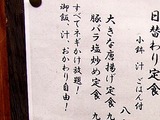 日替わり定食 八
小鉢 汁 ごはん付
大きな唐揚げ定食 九
豚バラ塩炒め定食 九
すべてネギかけ放題!
御飯、汁、おかわり自由!